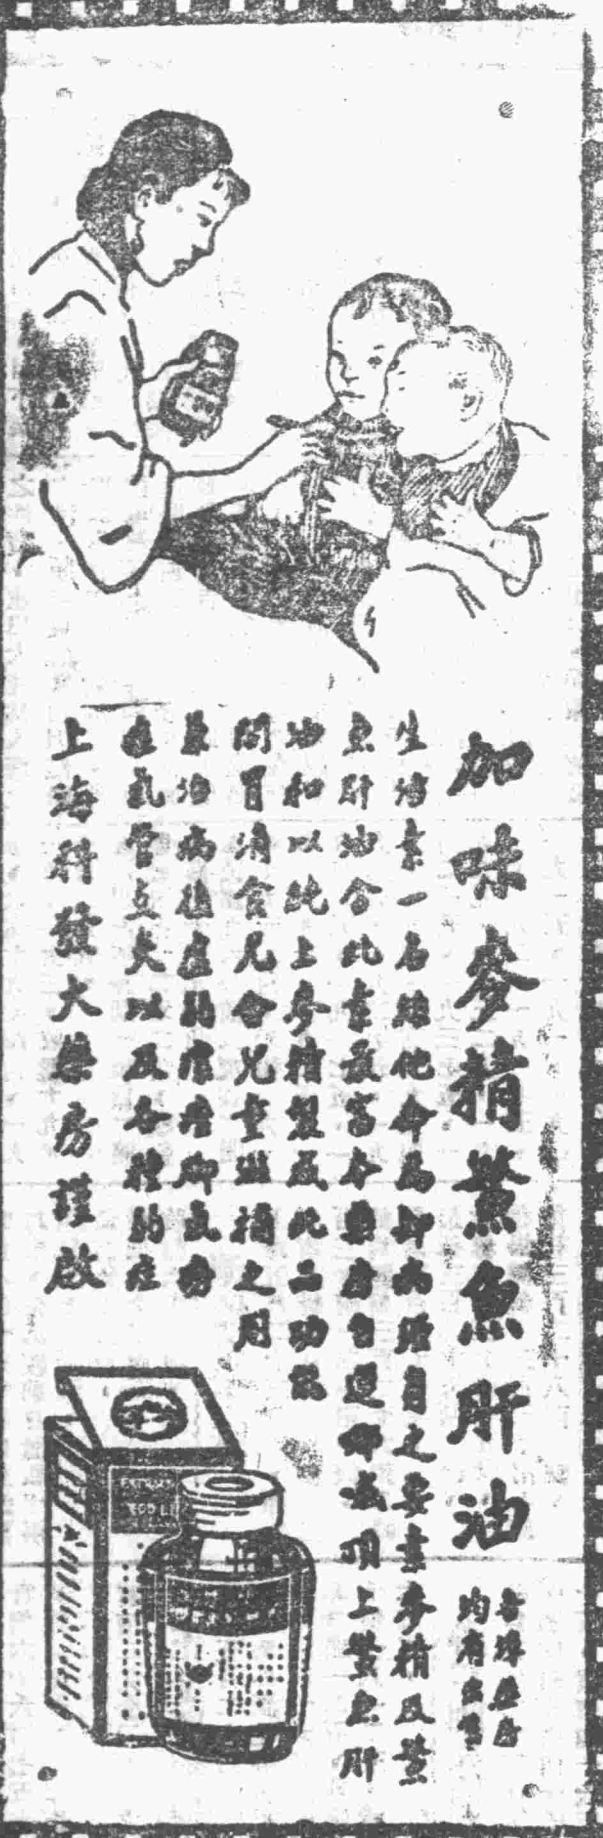 加味麥精鱉魚肝油
各埠藥房
均有出售
生活素一名維他命為却病增自之要素麥精及鱉
魚肝油含此素最富本藥房自運挪威頂上鱉魚肝
油和以純上麥精製成此二功能
開胃消食兒童滋補之用
兼治病後虛弱瘰癧脚氣癆
症氣管支炎以及各種弱症
上海科發大藥房謹啟